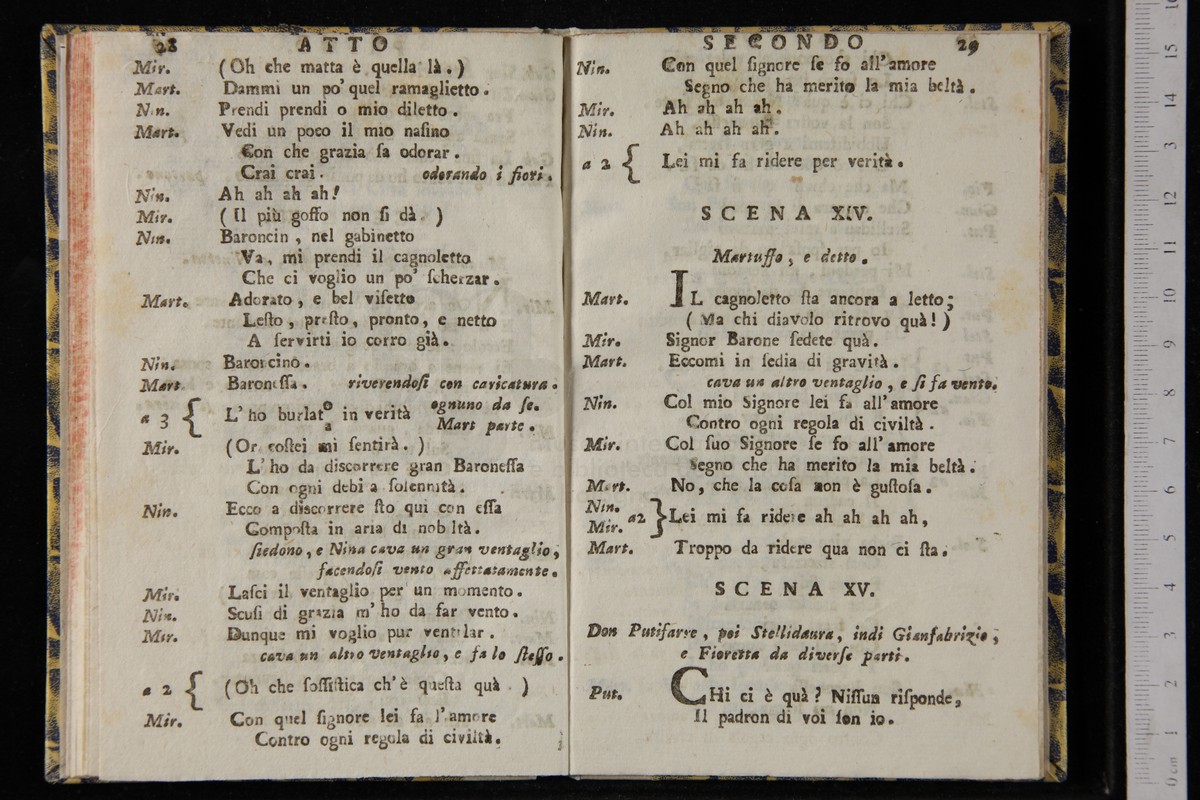 28 ATTO
Mir. (Oh che matta è quella là.)
Mart. Dammi un po' quel ramaglietto.
Nin. Prendi prendi o mio diletto.
Mart. Vedi un poco il mio nasino
Con che grazia sa odorar.
Crai crai. odorando i fiori.
Nin. Ah ah ah ah!
Mir. (Il più goffo non si dà.)
Nin. Baroncin, nel gabinetto
Va, mi prendi il cagnoletto
Che ci voglio un po' scherzar.
Mart. Adorato, e bel visetto
Lesto, presto, pronto, e netto
A servirti io corro già.
Nin. Baroncino.
Mart. Baronessa. riverendosi con caricatura.
a 3 { L'ho burlato in verità ognuno da se.
a Mart parte.
Mir. (Or costei mi sentirà.)
L'ho da discorrere gran Baronessa
Con ogni debita solennità.
Nin. Ecco a discorrere sto qui con essa
Composta in aria di nobiltà.
siedono, e Nina cava un gran ventaglio,
facendosi vento affettatamente.
Mir. Lasci il ventaglio per un momento.
Nin. Scusi di grazia m'ho da far vento.
Mir. Dunque mi voglio pur ventilar.
cava un altro ventaglio, e fa lo stesso.
a 2 { (Oh che sossistica ch'è questa quà.)
Mir. Con quel signore lei fa l'amore
Contro ogni regola di civiltà.
SECONDO 29
Nin. Con quel signore se fo all'amore
Segno che ha merito la mia beltà.
Mir. Ah ah ah ah.
Nin. Ah ah ah ah.
a 2 { Lei mi fa ridere per verità.
SCENA XIV.
Martuffo, e detto.
Mart. IL cagnoletto sta ancora a letto;
(Ma chi diavolo ritrovo quà!)
Mir. Signor Barone sedete quà.
Mart. Eccomi in sedia di gravità.
cava un altro ventaglio, e si fa vento.
Nin. Col mio Signore lei fa all'amore
Contro ogni regola di civiltà.
Mir. Col suo Signore se fo all'amore
Segno che ha merito la mia beltà.
Mart. No, che la cosa non è gustosa.
Nin.
Mir. a2 } Lei mi fa ridere ah ah ah ah,
Mart. Troppo da ridere qua non ci sta.
SCENA XV.
Don Putifarre, poi Stellidaura, indi Gianfabrizio,
e Fioretta da diverse parti.
Put. CHi ci è quà? Nissun risponde,
Il padron di voi son io.